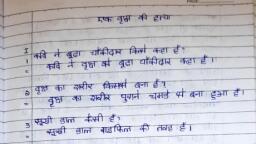 एक वृक्ष की हत्या
1 कवि ने बूढ़ा चौकीदार किसे कहा है?
- कवि ने वृक्ष को बूढ़ा चौकीदार कहा है।
2 वृक्ष का शरीर किससे बना है?
- वृक्ष का शरीर पुराने चमड़े से बना हुआ है।
3 सूखी डाल कैसी है?
- सूखी डाल राइफिल की तरह है।